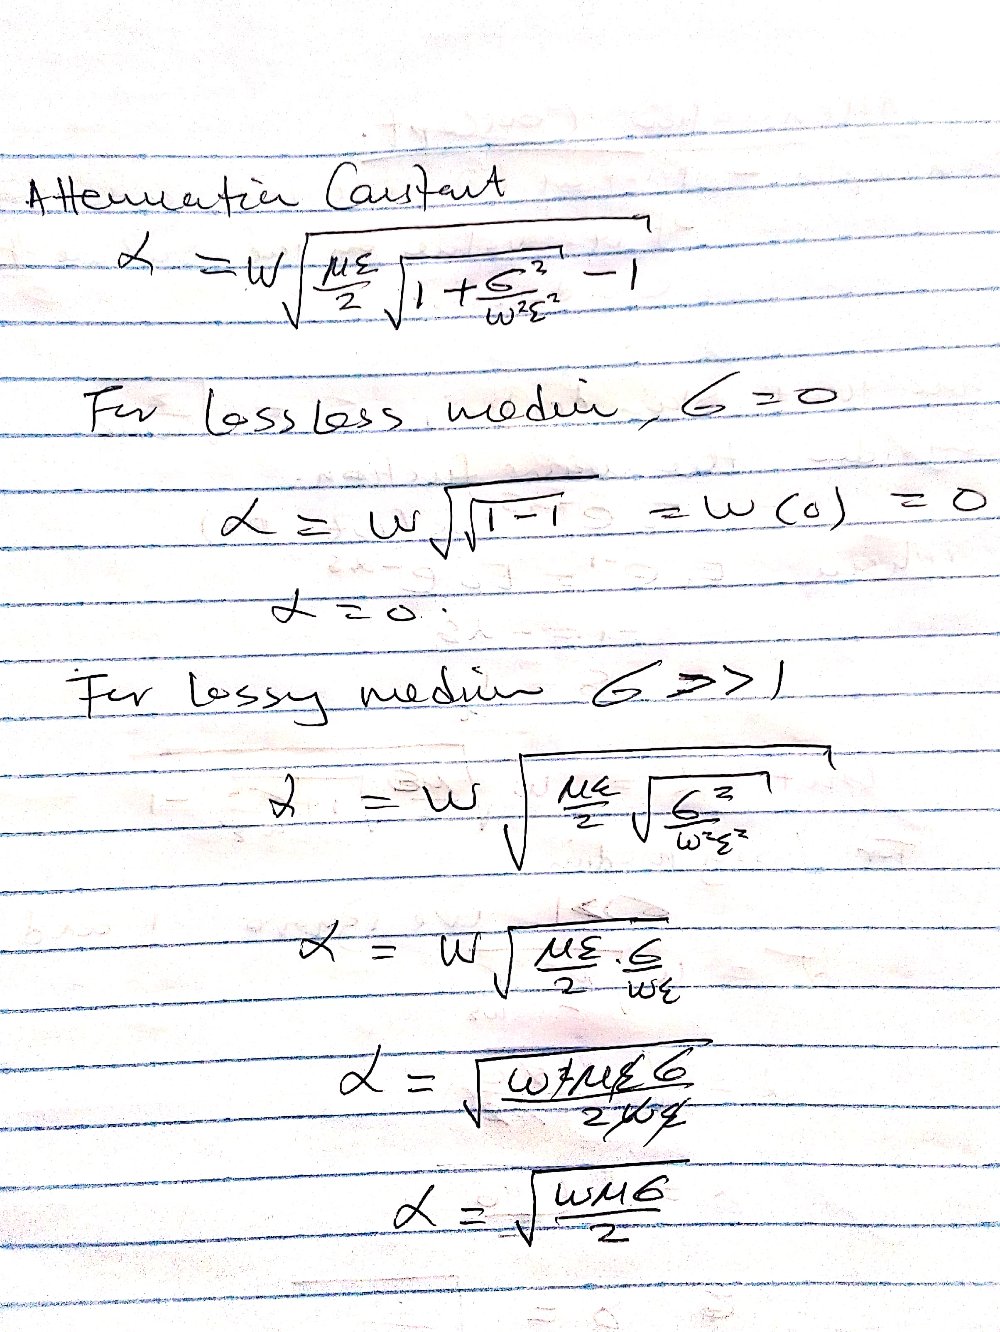 Attenuation Constant
α = w√(με/2 √(1 + σ²/w²ε²) - 1)
For lossless medium, σ = 0
α = w√(√1-1) = w(0) = 0
α = 0.
For lossy medium σ >> 1
α = w √(με/2 √(σ²/w²ε²))
α = w√(με/2 · σ/wε)
α = √(w²μεσ/2wε)
α = √(wμσ/2)